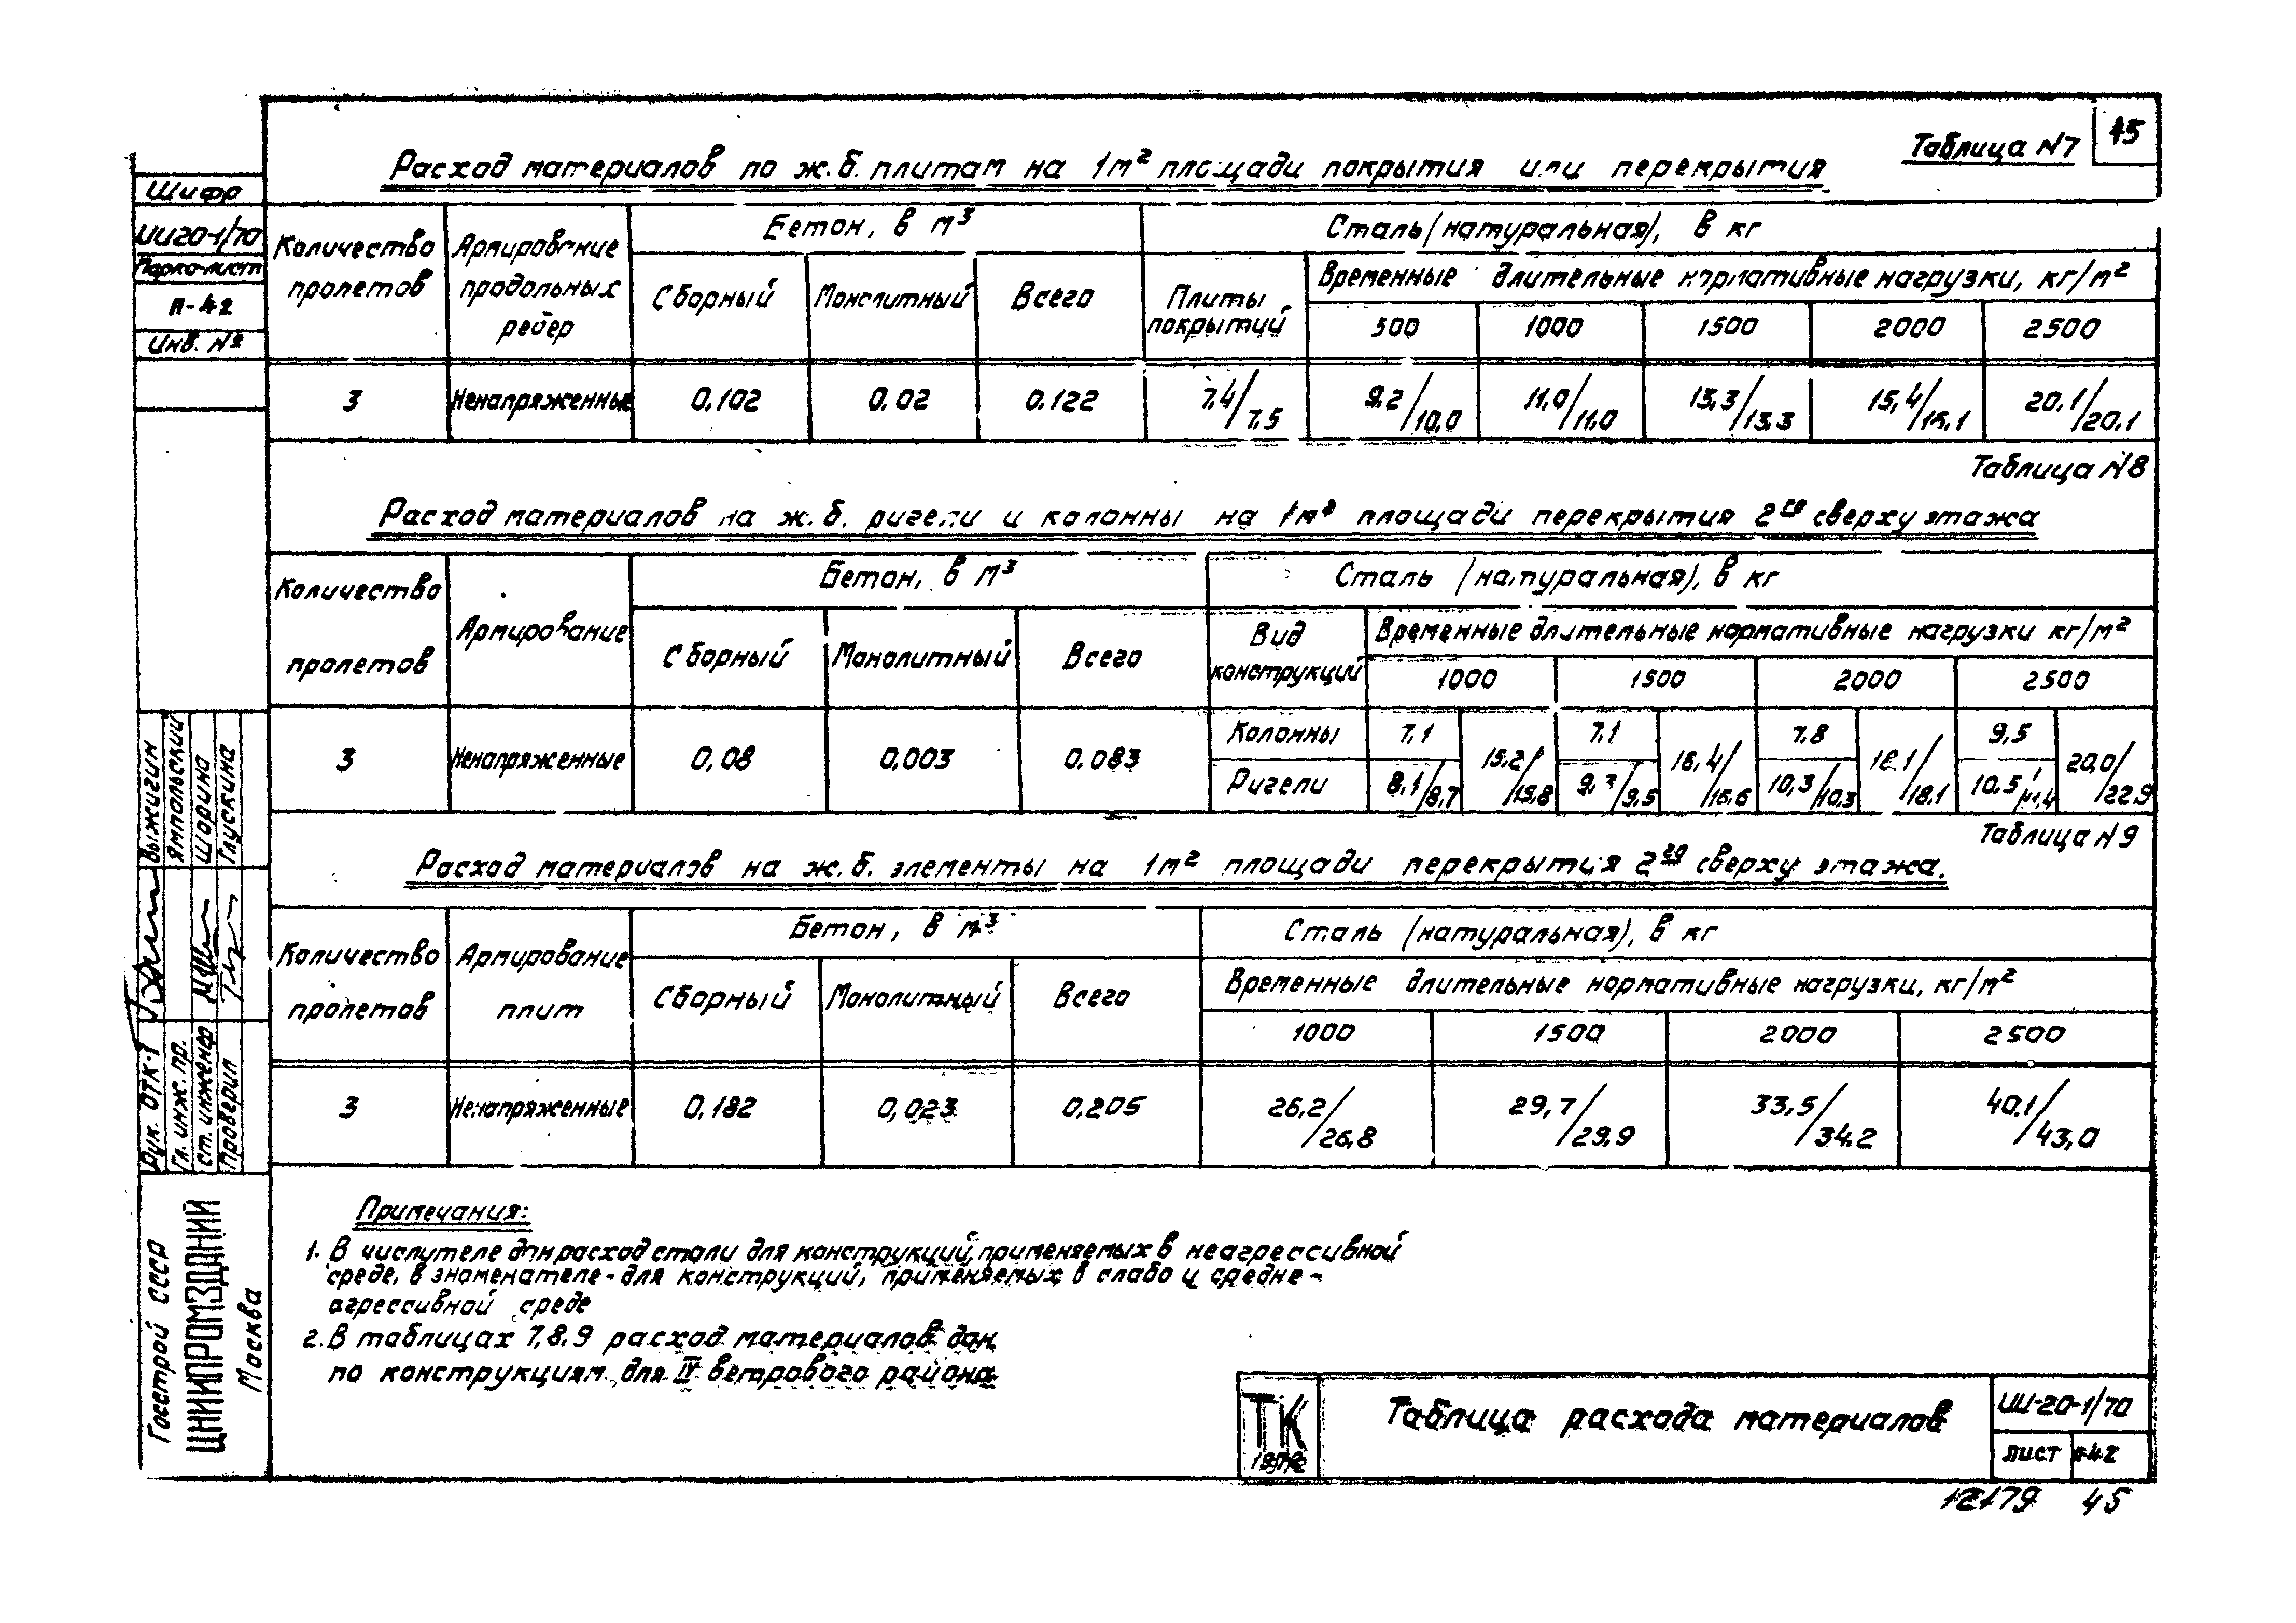 Таблица N7
45
Расход материалов по ж.б. плитам на 1м² площади покрытия или перекрытия
Шифр
ИИ20-1/70
Марка-лист
П-42
Инв. №
Количество пролетов
Армирование продольных ребер
Бетон, в м³
Сталь (натуральная), в кг
Сборный
Монолитный
Всего
Плиты покрытий
Временные длительные нормативные нагрузки, кг/м²
500
1000
1500
2000
2500
3
Ненапряженные
0,102
0.02
0.122
7.4/7.5
9.2/10,0
11,0/11,0
13,3/13.3
15,4/15,1
20.1/20.1
Таблица N8
Расход материалов на ж.б. ригели и колонны на 1м² площади перекрытия 2го сверху этажа
Количество пролетов
Армирование
Бетон, в м³
Сталь (натуральная), в кг
Сборный
Монолитный
Всего
Вид конструкций
Временные длительные нормативные нагрузки кг/м²
1000
1500
2000
2500
3
Ненапряженные
0,08
0,003
0.083
Колонны
7,1
15.2/15,8
7.1
16,4/16,6
7.8
18.1/18.1
9,5
20,0/22.9
Ригели
8,1/8,7
9,3/9,5
10,3/10,3
10,5/11,4
Таблица N9
Расход материалов на ж.б. элементы на 1м² площади перекрытия 2го сверху этажа.
Количество пролетов
Армирование плит
Бетон, в м³
Сталь (натуральная), в кг
Сборный
Монолитный
Всего
Временные длительные нормативные нагрузки, кг/м²
1000
1500
2000
2500
3
Ненапряженные
0,182
0,023
0,205
26,2/26,8
29,7/29,9
33,5/34.2
40,1/43,0
Примечания:
1. В числителе дан расход стали для конструкций, применяемых в неагрессивной
среде, в знаменателе - для конструкций, применяемых в слабо и средне-
агрессивной среде
2. В таблицах 7,8,9 расход материалов дан
по конструкциям для IV ветрового района
Рук. ОТК-1
Выжигин
Гл. инж. пр.
Ямпольский
Ст. инженер
Шорина
Проверил
Глускина
Госстрой СССР
ЦНИИПРОМЗДАНИЙ
Москва
ТК
Таблица расхода материалов
ИИ-20-1/70
лист
П-42
12179 45